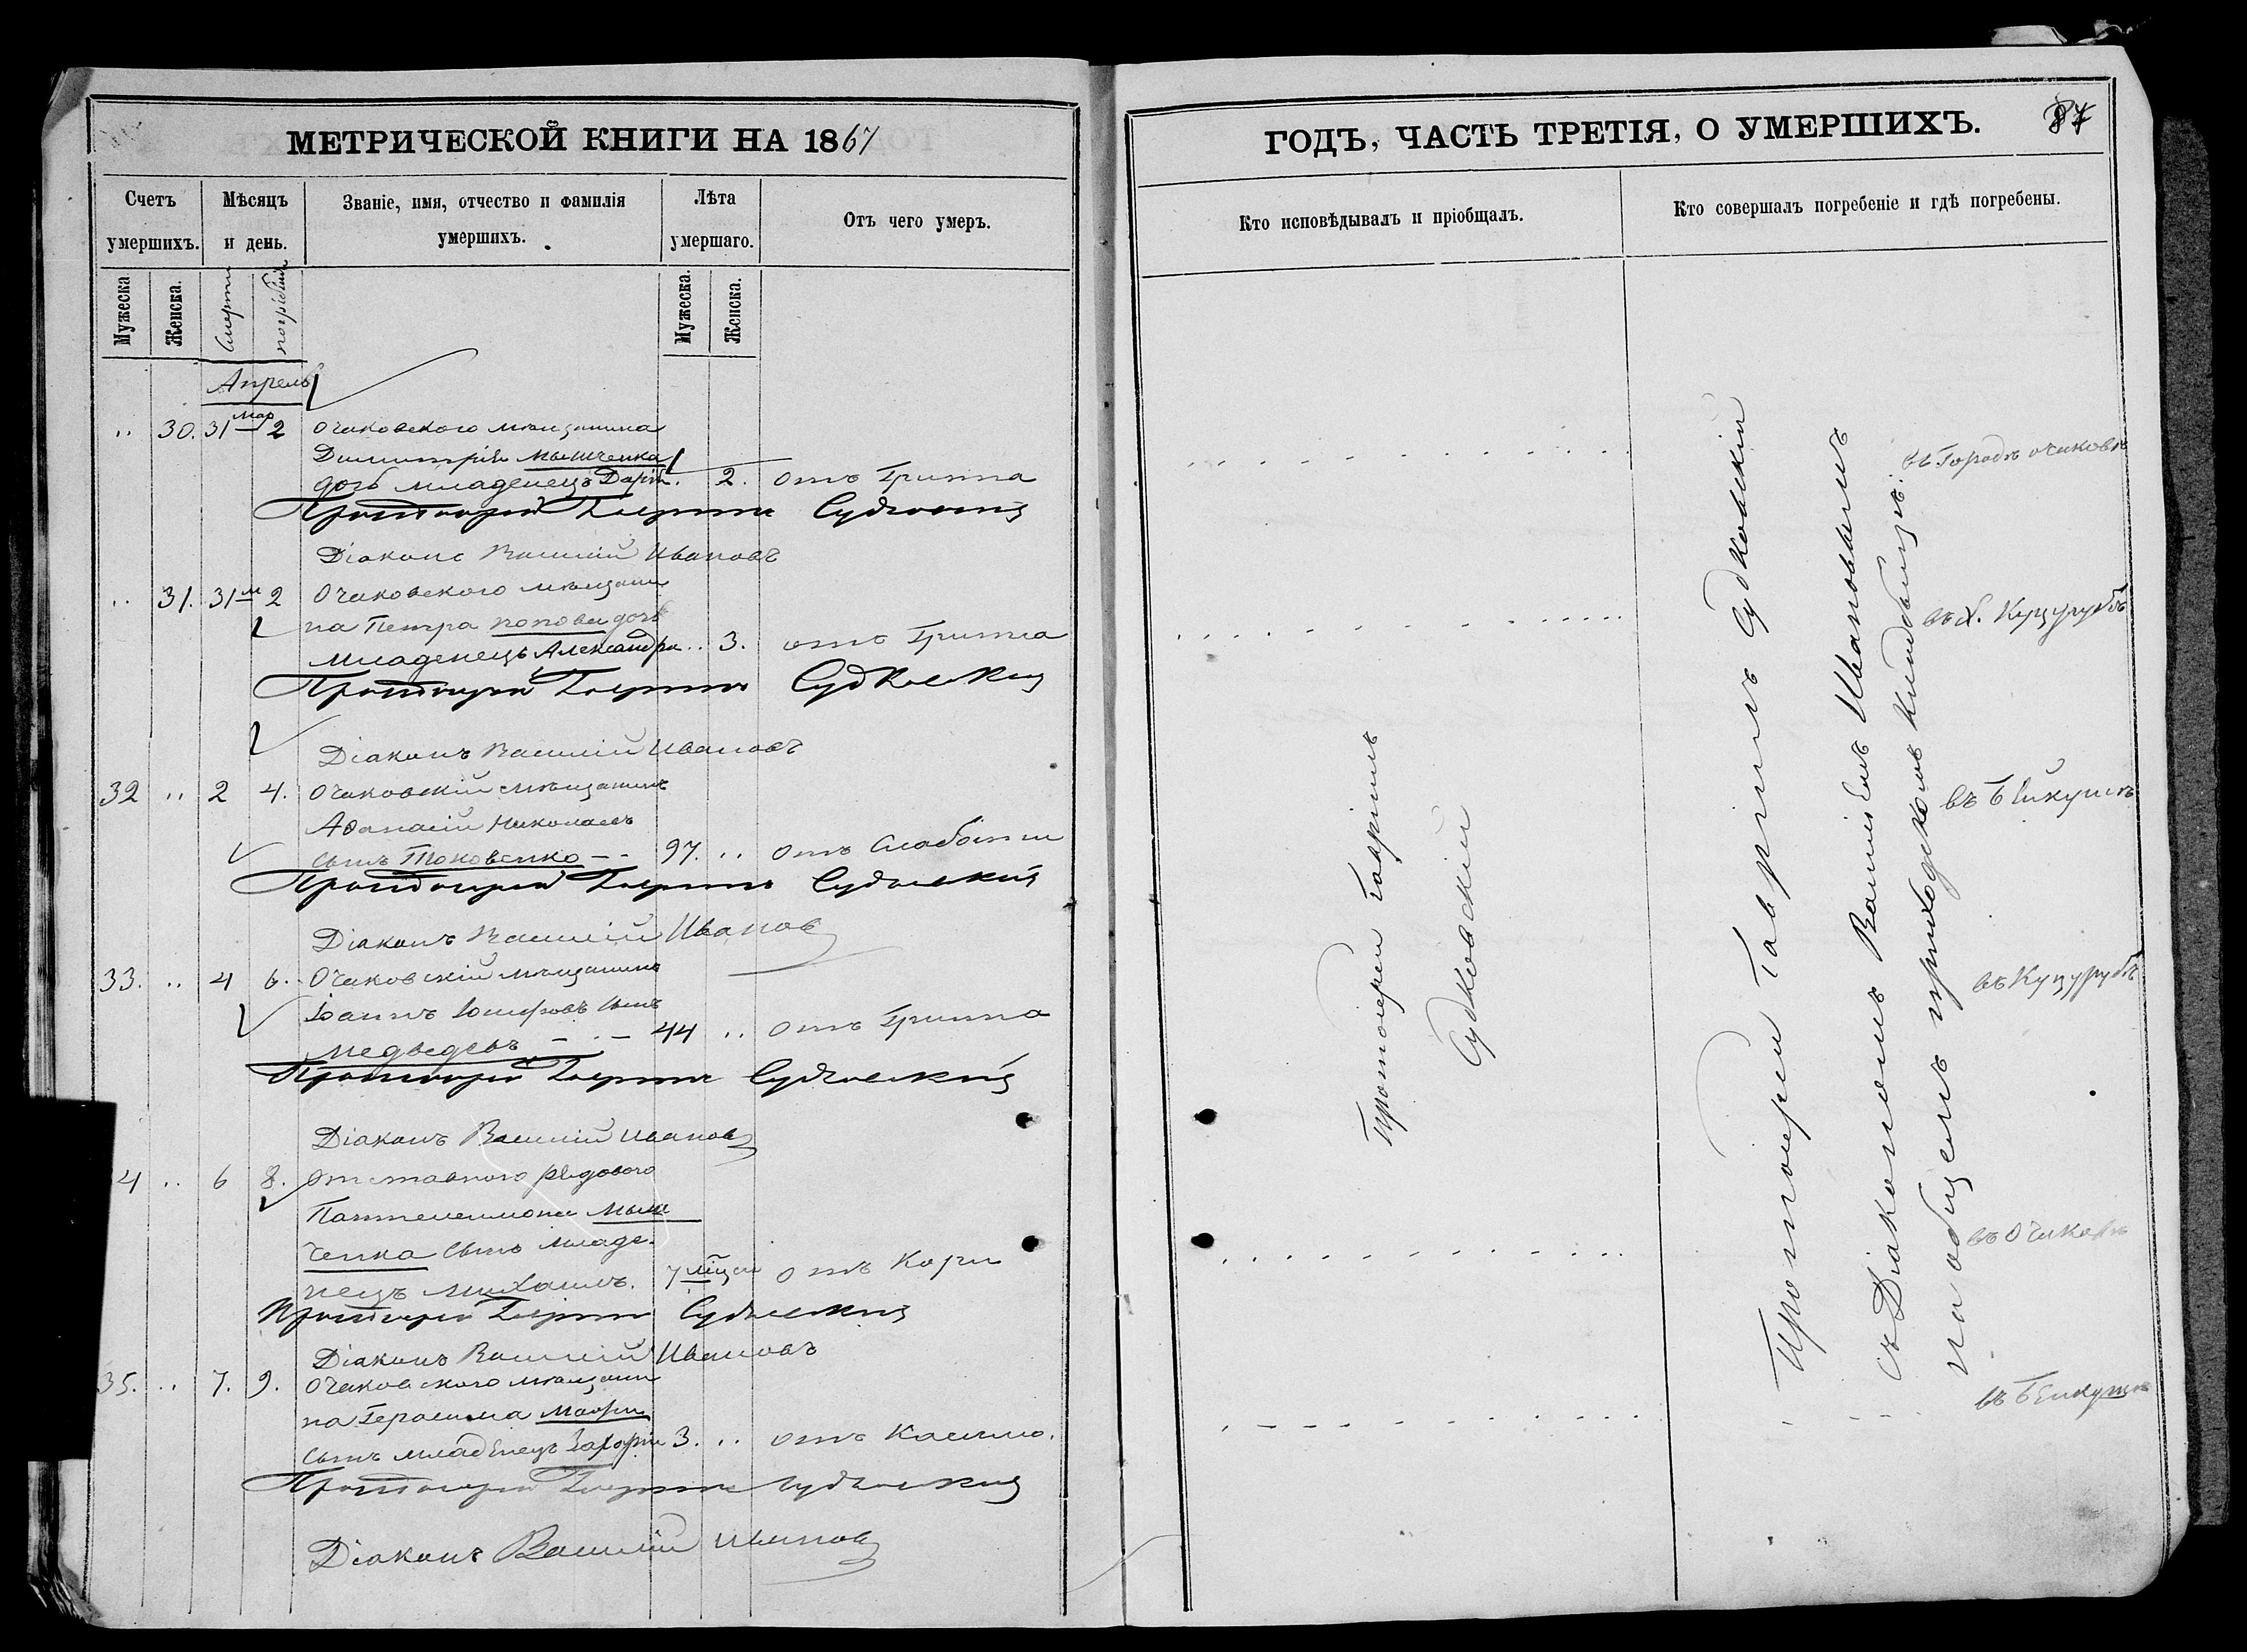 МЕТРИЧЕСКОЙ КНИГИ НА 1867
Счетъ умершихъ.
Мѣсяцъ и день.
Званіе, имя, отчество и фамилія умершихъ.
Лѣта умершаго.
Отъ чего умеръ.
Мужеска
Женска.
Смерти
погребенія
Мужеска.
Женска.
Апрель
.. 30. 31 мар 2 Очаковскаго мѣщанина
Димитрія Мышченка
дочь младенецъ Дарія. 2. отъ Гриппа
Протоіерей Гавріилъ Судковскій
Діаконъ Василій Ивановъ
.. 31. 31 м 2 Очаковскаго мѣщани
на Петра Попова дочь
младенецъ Александра .. 3. отъ Гриппа
Протоіерей Гавріилъ Судковскій
Діаконъ Василій Ивановъ
32 .. 2 4. Очаковскій мѣщанинъ
Аѳанасій Николаевъ
сынъ Токовенко -- 97. .. отъ Слабости
Протоіерей Гавріилъ Судковскій
Діаконъ Василій Ивановъ
33. .. 4 6. Очаковскій мѣщанинъ
Іоаннъ Іосифовъ сынъ
Медведевъ - . - 44 .. отъ Гриппа
Протоіерей Гавріилъ Судковскій
Діаконъ Василій Ивановъ
4 .. 6 8. Отставного рядового
Пантелеимона Мыш
ченка сынъ младе-
нецъ Михаилъ. 7 мѣся отъ Кори
Протоіерей Гавріилъ Судковскій
Діаконъ Василій Ивановъ
35. .. 7. 9. Очаковского мѣщани
на Герасима
сынъ младенецъ Захарія 3. .. отъ Кашлю.
Протоіерей Гавріилъ Судковскій
Діаконъ Василій Ивановъ
ГОДЪ, ЧАСТЬ ТРЕТІЯ, О УМЕРШИХЪ. 87
Кто исповѣдывалъ и пріобщалъ.
Кто совершалъ погребеніе и гдѣ погребены.
Протоіерей Гавріилъ
Судковскій
Протоіерей Гавріилъ Судковскій
съ Діакономъ Василіемъ Ивановымъ
на общемъ приходскомъ кладбищѣ:
въ Городѣ очаковѣ
въ д. Куцурубѣ
въ Бейкушѣ
въ Куцурубѣ
въ Очаковѣ
въ Бейкушѣ